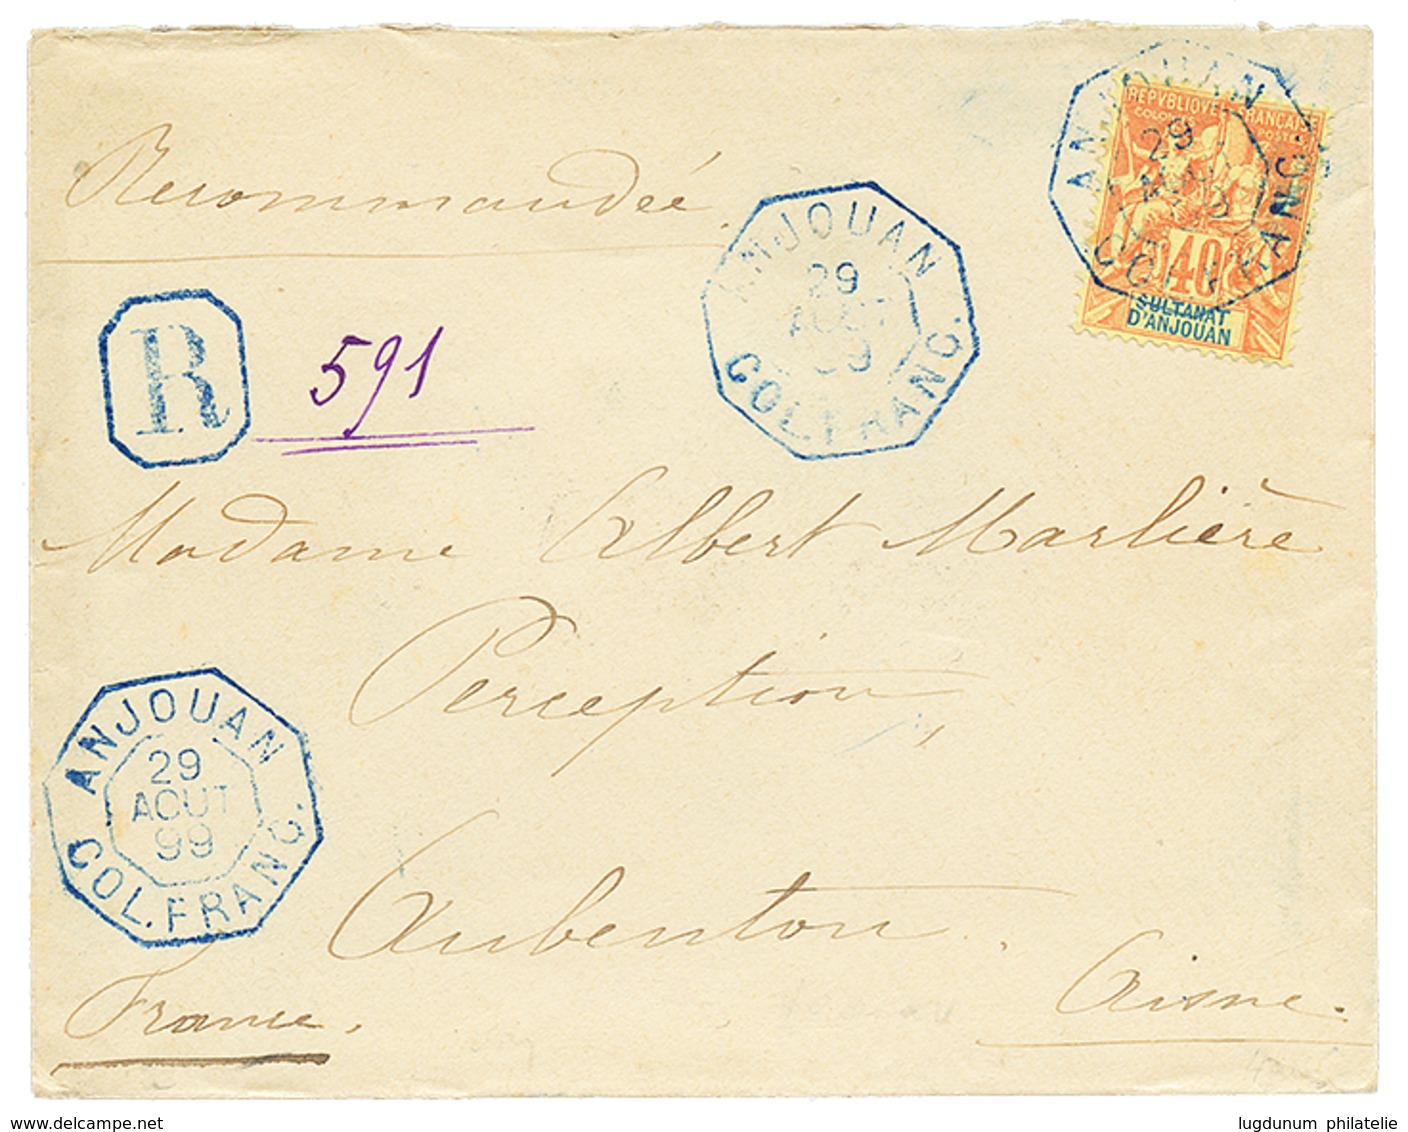 Recommandée
R
591
ANJOUAN
29
AOUT
99
COL. FRANC.
ANJOUAN
29
COL. FRANC.
REPVBLIQVE FRANÇAISE
COLONIES POSTES
40
SULTANAT
D'ANJOUAN
Madame Albert Marlière
Perception
Aubenton.
Aisne.
ANJOUAN
29
AOUT
99
COL. FRANC.
France.
www.delcampe.net
lugdunum philatelie